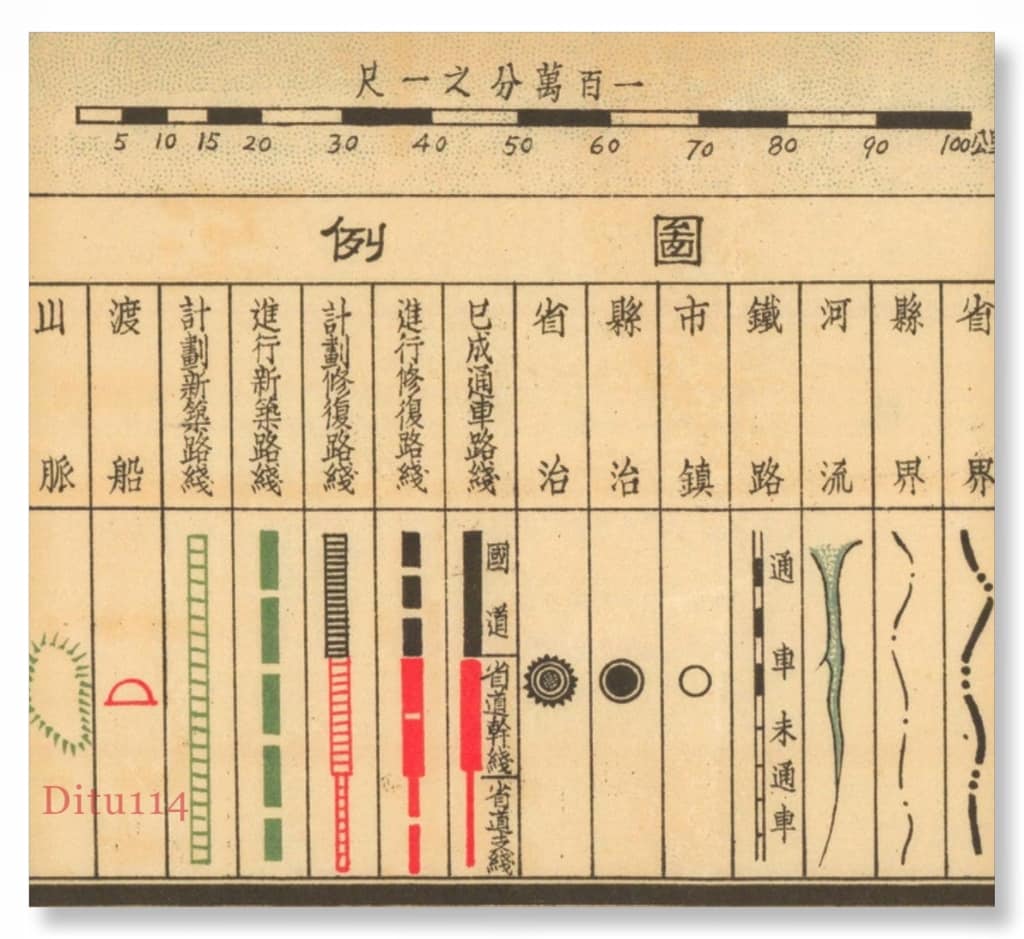 一百萬分之一尺
5 10 15 20 30 40 50 60 70 80 90 100公里
圖例
省界
縣界
河流
鐵路
市鎮
縣治
省治
已成通車路綫
進行修復路綫
計劃修復路綫
進行新築路綫
計劃新築路綫
渡船
山脈
通車
未通車
國道
省道幹綫
省道支綫
Ditu114